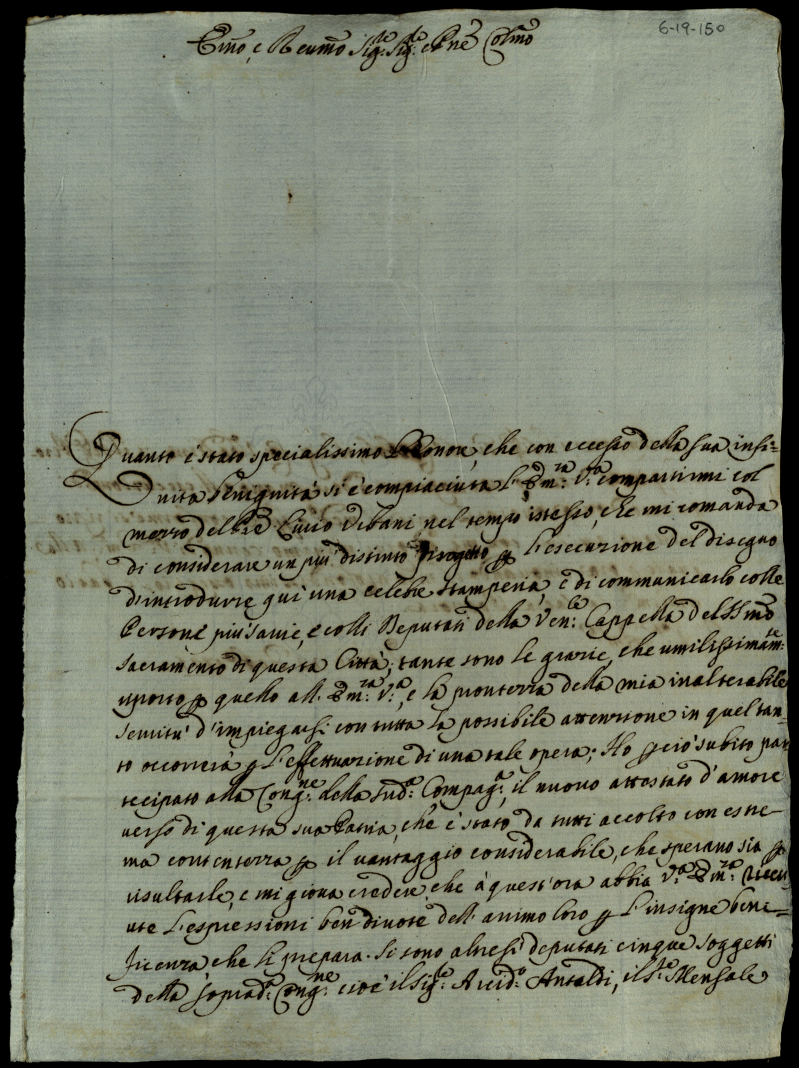 6-19-150
Emo, e Reumo Sig:re Sig:re e Pne Colmo
Quanto è stato specialissimo l'Honore, che con eccesso della sua infi=
nita benignità si è compiaciuta l'Em:za V:a compartirmi col
mezzo del Pre Livio Urbani nel tempo istesso, che mi comanda
di considerare un più distinto progetto p l'esecuzione del disegno
d'introdurre quì una celebre stamperia, e di communicarlo colle
Persone più savie, e colli Deputati della Ven:le Cappella del SSmo
Sacramento di questa Città; tante sono le grazie, che umilissimam:te
riporto p quello all' Em:za V:a, e la prontezza della mia inalterabile
servitù d'impiegarsi con tutta la possibile attenzione in quel tan=
to occorrerà p l'effettuazione di una tale opera; Ho p ciò subito par
tecipato alla Cong:ne della sud:a Compag:a, il nuovo attestato d'amore
verso di questa sua Patria, ch'è stato da tutti accolto con estre=
ma contentezza p il vantaggio considerabile, che sperano sia p
risultarle, e mi giova credere, che à quest'ora abbia V:a Em:za ricevu
te l'espressioni ben divote dell'animo loro p l'insigne bene=
ficenza che li prepara. Si sono altresì deputati cinque soggetti
della soprad:a Cong:ne cioè il Sig:re Arcid:o Antaldi, il S:re Mensale